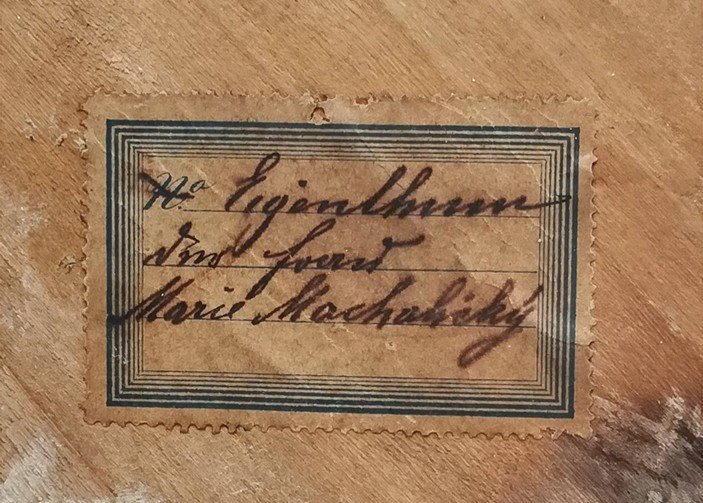 Nº Eigenthum
der Frau
Marie Machalický